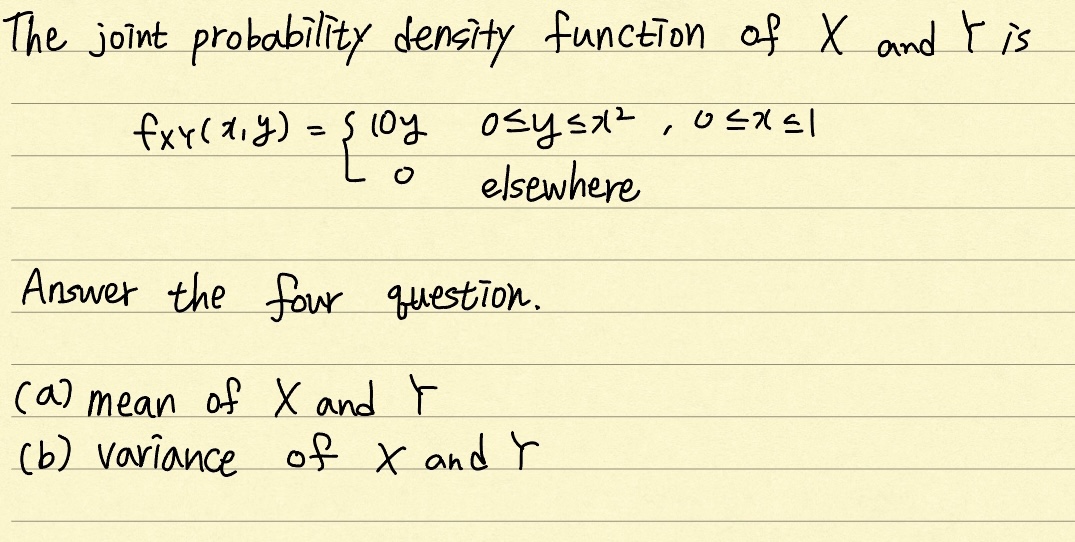 The joint probability density function of X and Y is
fXY(x,y) = { 10y 0≤y≤x² , 0≤x≤1
0 elsewhere
Answer the four question.
(a) mean of X and Y
(b) variance of X and Y